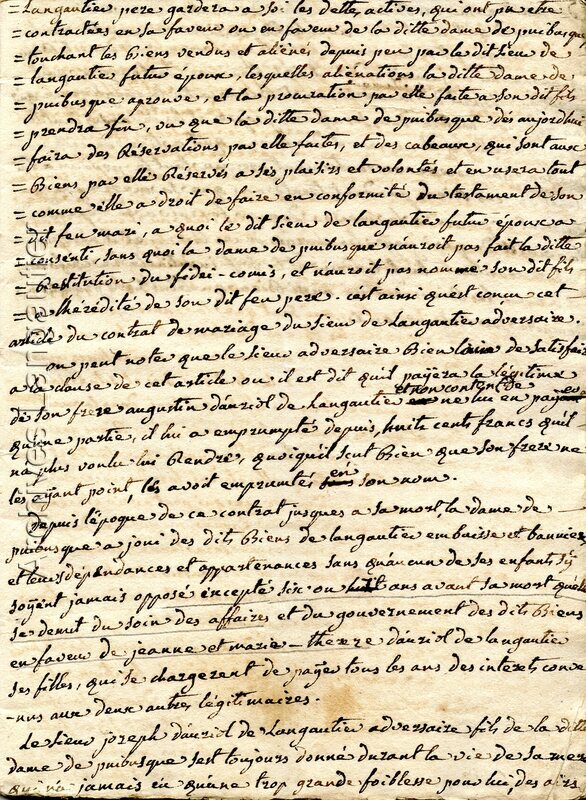 Langautier pere gardera a soi les dettes actives, qui ont pu etre
contractées en sa faveur ou en faveur de la ditte dame de puibusque
= touchant les Biens vendus et aliénés depuis peu par le dit sieur de
= langautier futur époux, lesquelles aliénations la ditte dame de
= puibusque aprouve, et la procuration par elle faite a son dit fils
= prendra fin, vu que la ditte dame de puibusque dès aujordhui
= faira des Réservations par elle faites, et des cabeaux, qui sont aux
= Biens par elle Réservés a ses plaisirs et volontés et en usera tout
= comme elle a droit de faire en conformité du testament de son
= dit feu mari, a quoi le dit sieur de langautier futur époux a
= consenti, sans quoi la dame de puibusque n'auroit pas fait la ditte
= Restitution du fidei-comis, et n'auroit pas nommé son dit fils
= a l'hérédité de son dit feu pere. c'est ainsi qu'est concu cet
article du contrat de mariage du sieur de Langautier adversaire.
on peut noter que le sieur adversaire Bien loin de satisfaire
a la clause de cet article ou il est dit qu'il payera la légitime
de son frere augustin dauriol de Langautier et non content de ne lui en payer
qu'une partie, il lui a emprumpté depuis, huit cents francs qu'il
n'a plus voulu lui Rendre, quoiqu'il scut Bien que son frere ne
les ayant point, les avoit emprumtés en son nom.
Depuis l'époque de ce contrat jusques a sa mort, la dame de
puibusque a joui des dits Biens de langautier embaisse et bannieres
et leurs dépendances et appartenances sans qu'aucun de ses enfants s'y
soyent jamais opposé excepté six ou huit ans avant sa mort quelle
se demit du soin des affaires et du gouvernement des dits Biens
en faveur de jeanne et marie-thereze dauriol de langautier
ses filles, qui se chargerent de payer tous les ans des interets conve
-nus aux deux autres légitimaires.
Le sieur joseph dauriol de Langautier adversaire fils de la ditte
dame de puibusque s'est toujours donné durant la vie de sa mere
qui n'a jamais eu qu'une trop grande foiblesse pour lui, des airs